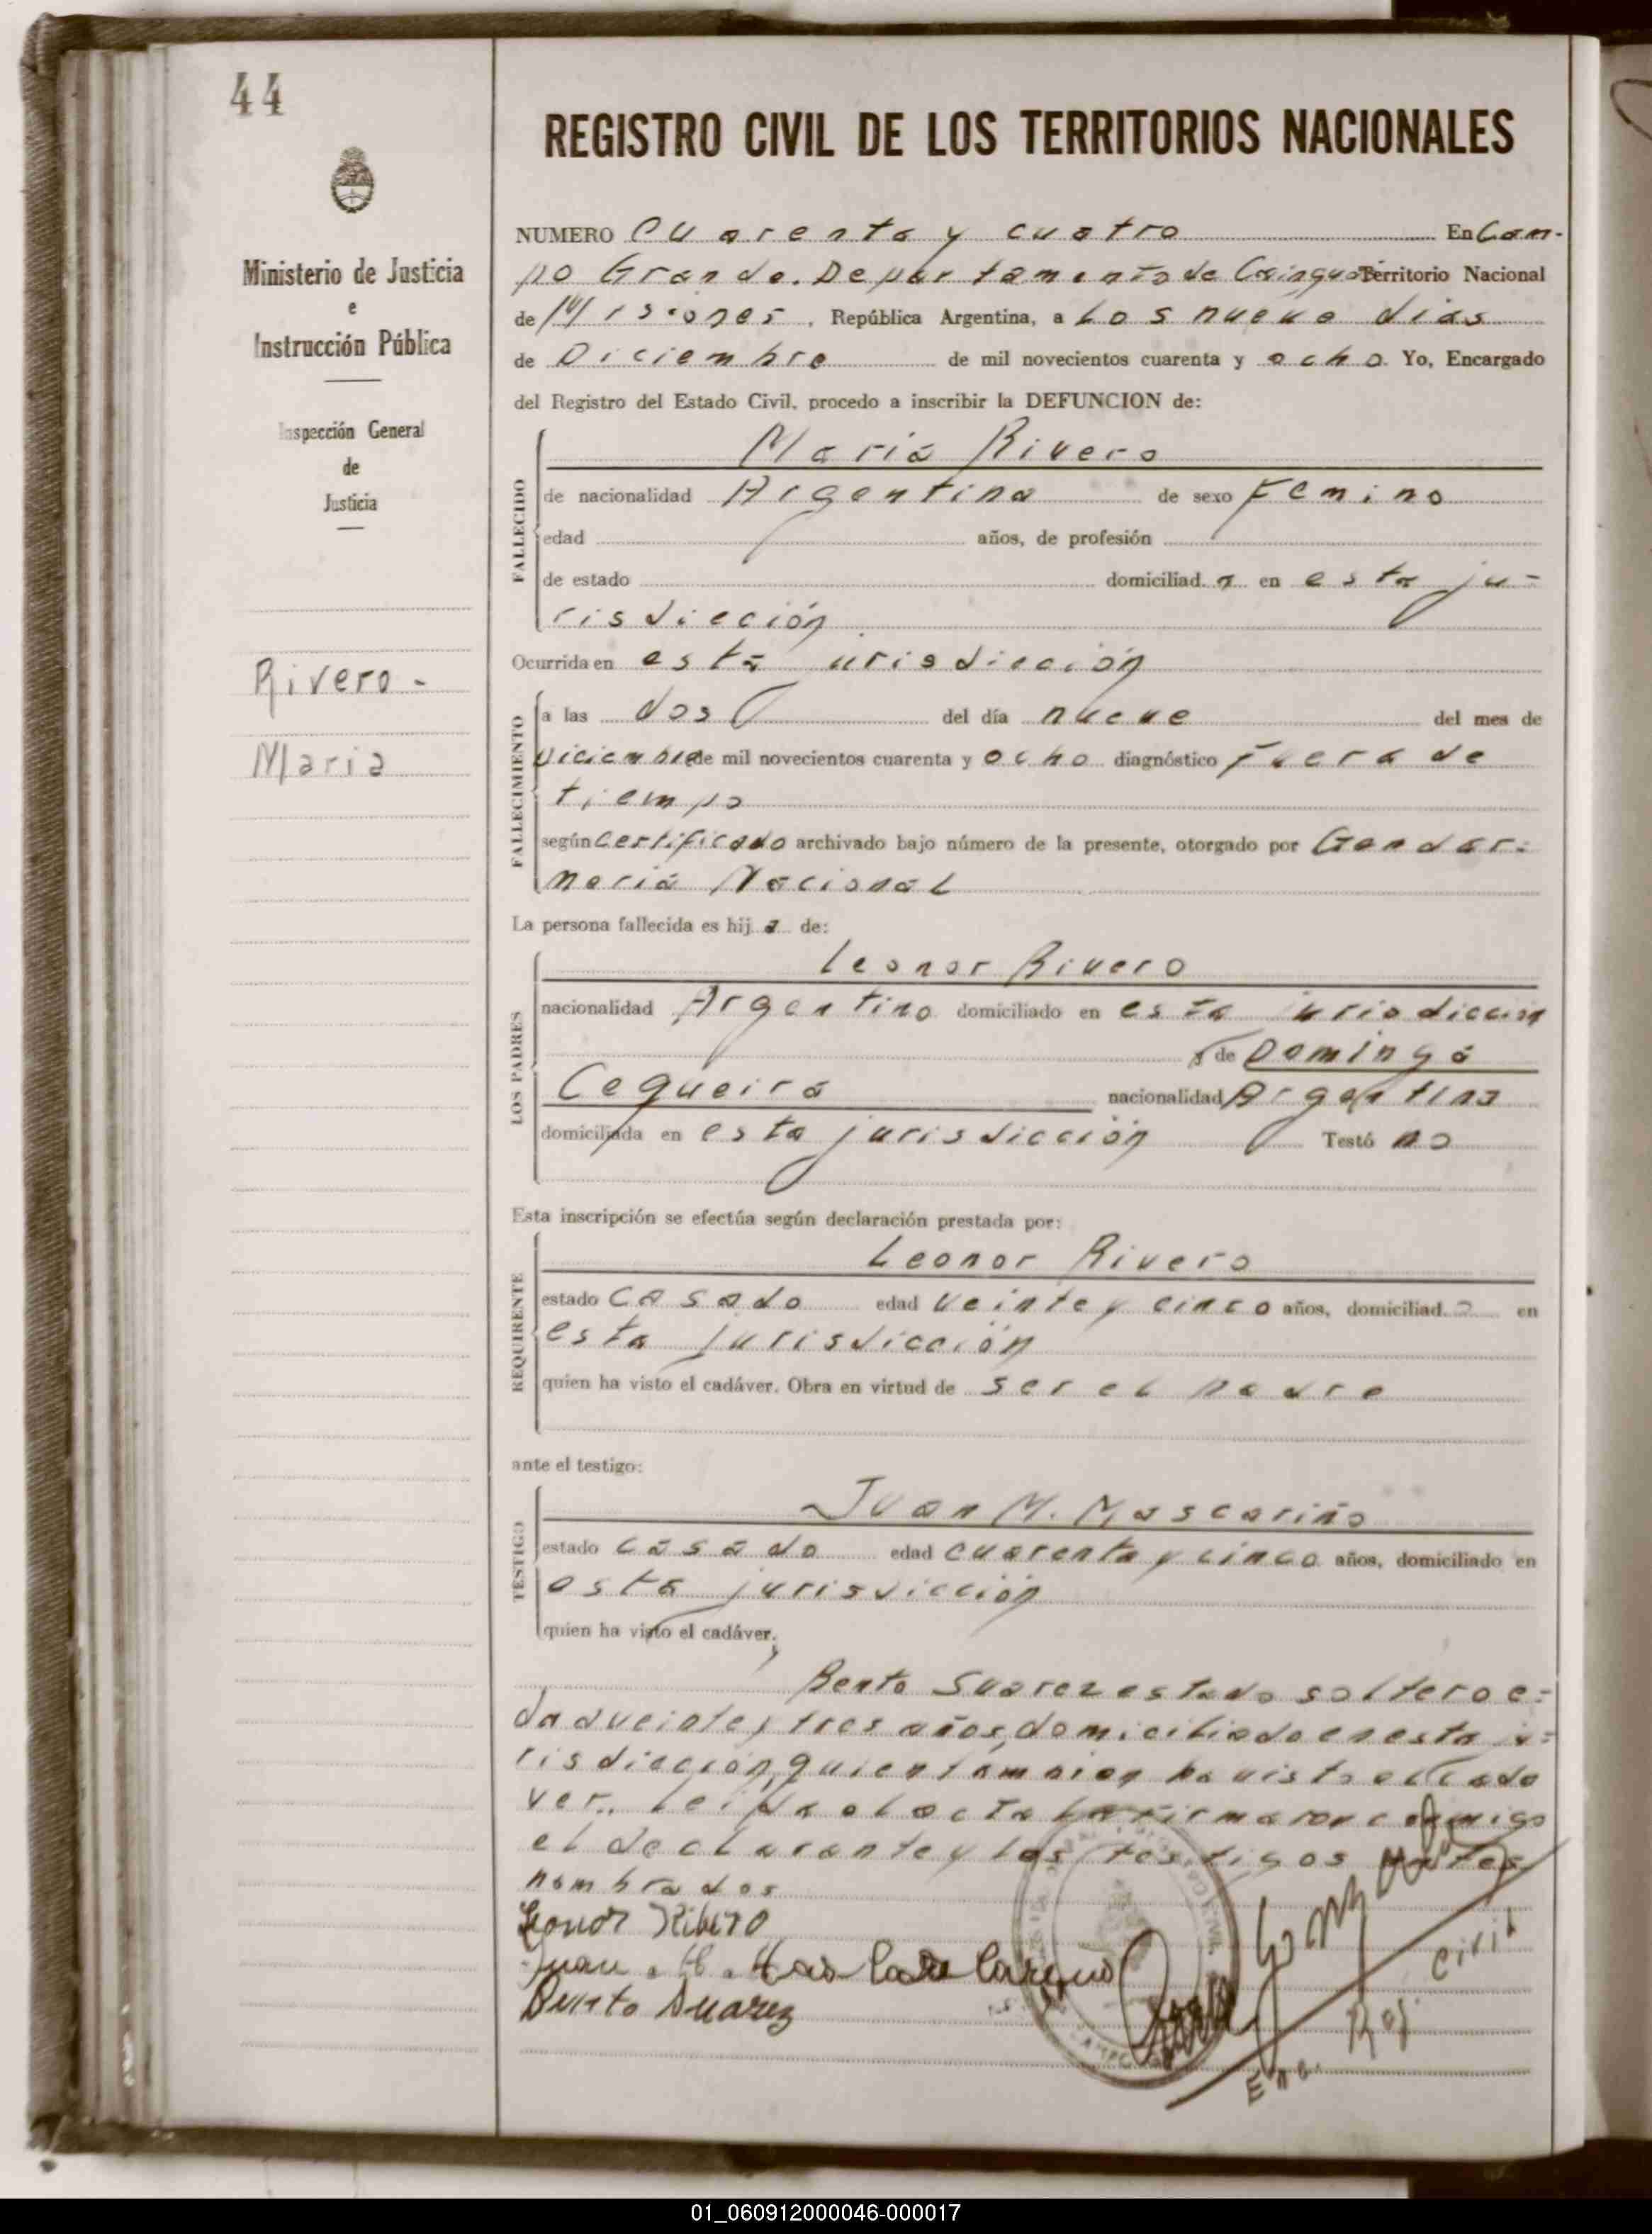 44
Ministerio de Justicia
e
Instrucción Pública
Inspección General
de
Justicia
Rivero -
Maria
REGISTRO CIVIL DE LOS TERRITORIOS NACIONALES
NUMERO Cuarenta y cuatro En Cam-
po Grande. Departamento de Cainguas Territorio Nacional
de Misiones, República Argentina, a Los nueve días
de Diciembre de mil novecientos cuarenta y ocho Yo, Encargado
del Registro del Estado Civil, procedo a inscribir la DEFUNCION de:
FALLECIDO
Maria Rivero
de nacionalidad Argentina de sexo Femino
edad años, de profesión
de estado domiciliad a en esta ju-
risdicción
Ocurrida en esta jurisdicción
FALLECIMIENTO
a las dos del día nueve del mes de
Diciembre de mil novecientos cuarenta y ocho diagnóstico Fuera de
tiempo
según certificado archivado bajo número de la presente, otorgado por Gendar-
meria Nacional
La persona fallecida es hij a de:
LOS PADRES
Leonor Rivero
nacionalidad Argentino domiciliado en esta jurisdicción
y de Dominga
Cequeira nacionalidad Argentina
domiciliada en esta jurisdicción Testó no
Esta inscripción se efectúa según declaración prestada por:
REQUIRENTE
Leonor Rivero
estado casado edad veinte y cinco años, domiciliad o en
esta jurisdicción
quien ha visto el cadáver. Obra en virtud de ser el padre
ante el testigo:
TESTIGO
Juan M. Mascariño
estado casado edad cuarenta y cinco años, domiciliado en
esta jurisdicción
quien ha visto el cadáver,
Bento Suarez estado soltero e-
dad veinte y tres años, domiciliado en esta ju-
risdicción, quien tambien ha visto el cada
ver.. Leida el acta la firmaron conmigo
el declarante y los testigos antes
nombrados
Leonor Ribero
Juan . M.
Bento Suarez
Enc. Reg. Civil
01_060912000046-000017